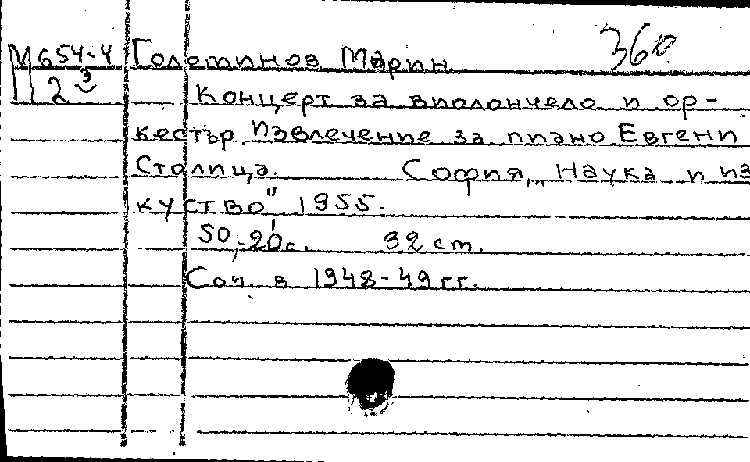 М654-4 Големинов Марин 360
2 Концерт за виолончело и ор-
кестър. Извлечение за пиано Евгени
Столица. София, „Наука и из
куство" 1955.
50, 20 с. 32 cm.
Соч. в 1948-49 гг.